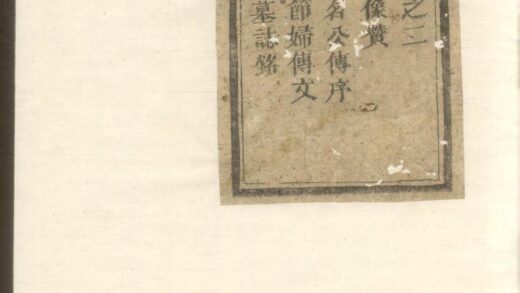 之二
像贊
名公傳序
節婦傳文
墓誌銘